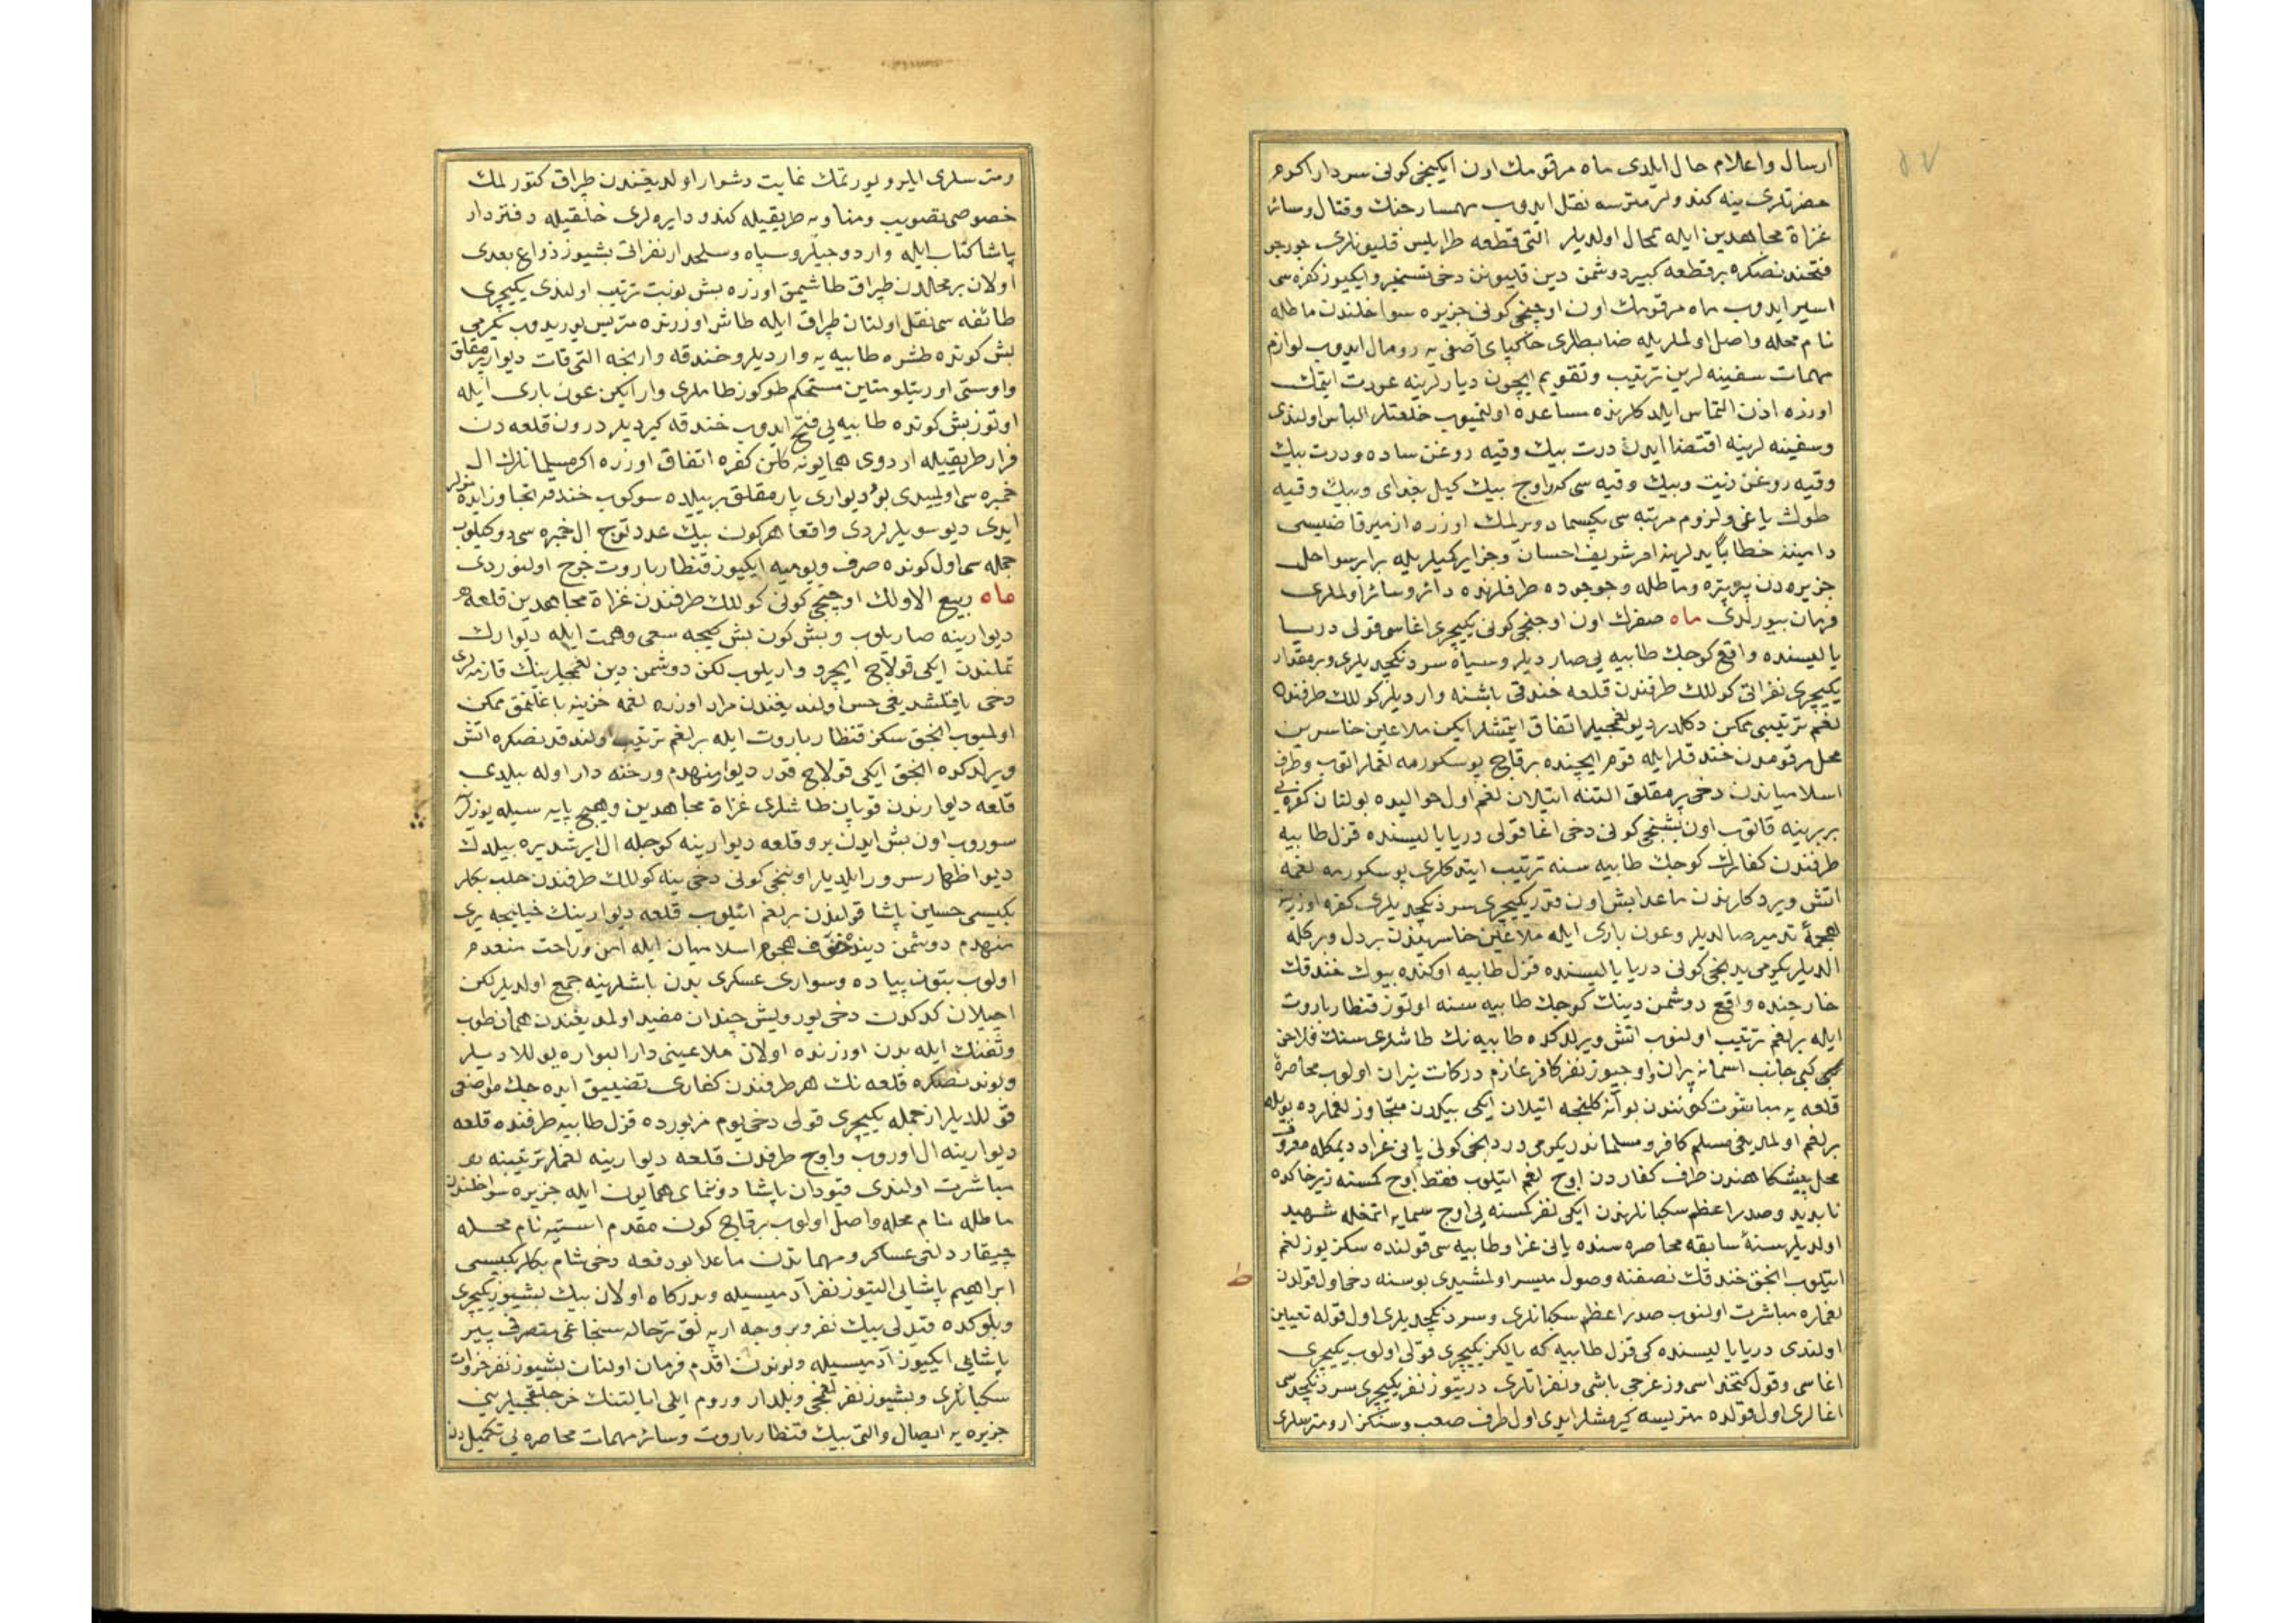 ارسال واعلام حال ایلدی ماه مرقومك اون ایكینجی كونی سردار اكرم
حضرتلری ینه كندولر مترسه نقل ایدوب جنك وقتال وسائر
غزاة مجاهدین ایله اولدیلر التی قطعه طرابلس قلیونلری
فتحندنصكره برقطعه كبیر دوشمن دین قلیونن دخی تسخیر وایكیوز كفره سی
اسیر ایدوب ماه مرقومك اون اوچنجی كونی جزیره سواحلندن ماطله
نام محله واصل اولملریله ضابطلری خاكپای آصفی یه رومال ایدوب لوازم
مهمات سفینه لرین ترتیب وتقویم ایچون دیارلرینه عودت ایتمك
اوزره اذن التماس ایلدكلرنده مساعده اولنمیوب خلعتلر الباس اولندی
وسفینه لرینه اقتضا ایدن درت بیك وقیه روغن ساده ودرت بیك
وقیه روغن زیت وبیك وقیه سركه اوچ بیك كیل بغدای وبیك وقیه
طوك یاغی ولزوم مرتبه سی بكسماد ویرلمك اوزره ازمیر قاضیسی
خطابا یدلرینه امر شریف احسان وجزایر كمیلریله برابر سواحل
جزیره دن وماطله وجوجوده طرفلرنده دائر وسائر اولملری
فرمان بیورلدی ماه صفرك اون اوچنجی كونی یكیچری اغاسی قولی دریا
یالیسنده واقع كوچك طابیه یی صاردیلر وسپاه سردنكچدیلری وبرمقدار
یكیچری نفراتی كوللك طرفندن قلعه خندقی باشنه واردیلر كوللك طرفنده
لغم ترتیبی ممكن دكلدر دیو لغمجیلر اتفاق ایتمشلر ایكن ملاعین خاسرین
محل مرقومدن خندقلر ایله قوم ایچنده برقاچ پوسكورمه لغملر اتوب وطرف
اسلامیاندن دخی پرمقلق التنه اتیلان لغم اول حوالیده بولنان كفره یی
بربرینه قاتوب اون بشنجی كونی دخی اغا قولی دریا یالیسنده قزل طابیه
طرفندن كفارك كوچك طابیه سنه ترتیب ایتدكلری پوسكورمه لغمه
اتش ویردكلرندن ماعدا بش اون قدر یكیچری سردنكچدیلری كفره اوزرینه
هجمۀ تدمیر صالدیلر وعون باری ایله ملاعین خاسریندن بر دل وبر كله
الدیلر یكرمی یدنجی كونی دریا یالیسنده قزل طابیه اوكنده بیوك خندقك
خارجنده واقع دوشمن دینك كوچك طابیه سنه اوتوز قنطار باروت
ایله برلغم ترتیب اولنوب اتش ویرلدكده طابیه نك طاشلری سنك فلاخن
كبی جانب اسمانه پران واوچیوز نفر كافر عازم دركات نیران اولوب محاصرۀ
قلعه یه مباشرت كونندن بوآنه كلنجه اتیلان ایكی بیكدن متجاوز لغملرده بویله
برلغم اولمدیغی مسلم كافر ومسلماندر یكرمی دردنجی كونی یانی غزاد دیمكله معروف
محل پیشكاهندن طرف كفاردن اوچ لغم اتیلوب فقط اوچ كمسنه زیرخاكده
ناپدید وصدراعظم سكبانلرندن ایكی نفر كمسنه یی اوج سمایه اتمغله شهید
اولدیلر سنۀ سابقه محاصره سنده یانی غزاد طابیه سی قولنده سكزیوز لغم
اتیلوب انجق خندقك نصفنه وصول میسر اولمشیدی بوسنه دخی اول قولدن
لغملره مباشرت اولنوب صدراعظم سكبانلری وسردنكچدیلری اول قوله تعیین
اولندی دریا یالیسنده كی قزل طابیه كه یالكز یكیچری قولی اولوب یكیچری
اغاسی وقول كتخداسی وزغرجی باشی ونفراتلری درتیوز نفر یكیچری سردنكچدیسی
اغالری اول قولده متریسه كیرمشلر ایدی اول طرف صعب وسنكزار ومترسلری
ومترسلری ایلرو یورتمك غایت دشوار اولدیغندن طپراق كتورلمك
خصوصی تصویب ومناوبه طریقیله كندو دایره لری خلقیله دفتردار
پاشا كتاب ایله واردوجیلر وسپاه وسلحدار نفراتی بشیوز ذراع بعدی
اولان برمحلدن طپراق طاشیمق اوزره بش نوبت ترتیب اولندی یكیچری
طائفه سی نقل اولنان طپراق ایله طاش اوزرنده متریس یوریدوب یكرمی
بش كونده طشره طابیه یه واردیلر وخندقه وارنجه التی قات دیوار پرمقلق
واوستی اورتیلو متین مستحكم طوكوز طاملری وار ایكن عون باری ایله
اوتوز بش كونده طابیه یی فتح ایدوب خندقه كیردیلر درون قلعه دن
فرار طریقیله اردوی همایونه كلن كفره اتفاق اوزره اكر مسلمانلرك ال
خمبره سی اولمیدی بو دیواری پارمقلق بر ییلده سوكوب خندقه تجاوز ایده مزلر
ایدی دیو سویلرلردی واقعا هركون بیك عدد توج ال خمبره سی دوكیلوب
جمله سی اول كونده صرف ویومیه ایكیوز قنطار باروت خرج اولنوردی
ماه ربیع الاولك اوچنجی كونی كوللك طرفندن غزاة مجاهدین قلعه
دیوارینه صاریلوب وبش كون بش كیجه سعی وهمت ایله دیوارك
تملندن ایكی قولاچ ایچرو واریلوب لكن دوشمن دین لغمجیلرینك قازمه لری
دخی یاقلشدیغی حس اولندیغندن مراد اوزره لغمه خزینه باغلنمق ممكن
اولمیوب انجق سكز قنطار باروت ایله برلغم ترتیب اولندقدنصكره اتش
ویرلدكده انجق ایكی قولاچ قدر دیوار منهدم ورخنه دار اوله بیلدی
قلعه دیوارندن قوپان طاشلری غزاة مجاهدین وهیج پایه سیله یوزلرینه
سوروب اون بش ایدن برو قلعه دیوارینه كوجله ال ایرشدیره بیلدك
دیو اظهار سرور ایلدیلر اوننجی كونی دخی ینه كوللك طرفندن حلب بكلر
بكیسی حسین پاشا قولندن برلغم اتیلوب قلعه دیوارینك خیلیجه یری
منهدم دوشمن دینده خوف هجوم اسلامیان ایله امن وراحت منعدم
اولوب بتون پیاده وسواری عسكری بدن باشلرینه جمع اولدیلر لكن
اچیلان كدكدن دخی یورویش چندان مفید اولمدیغندن همان طوب
وتفنك ایله بدن اوزرنده اولان ملاعینی دارالبواره یوللادیلر
وبوندنصكره قلعه نك هر طرفندن كفاری تضییق ایده جك مواضعی
قوللادیلر ازجمله یكیچری قولی دخی یوم مزبورده قزل طابیه طرفنده قلعه
دیوارینه ال اوروب واوچ طرفدن قلعه دیوارینه لغملر ترتیبنه
مباشرت اولندی قپودان پاشا دونمای همایون ایله جزیره سواحلندن
ماطله نام محله واصل اولوب برقاچ كون مقدم استیه نام محله
چیقاردلتی عساكر ومهماتدن ماعدا بودفعه دخی شام بكلربكیسی
ابراهیم پاشایی التیوز نفر آدمیسیله ودركاه اولان بیك بشیوز یكیچری
وبلوكده قیدلی بیك نفر وبروجه ارپه لق ترحاله سنجاغی متصرفی پیر
پاشایی ایكیوز آدمیسیله وبوندن اقدم فرمان اولنان بشیوز نفر
سكبانلری وبشیوز نفر لغمجی وبلدار وروم ایلی ایالتنك
جزیره یه ایصال والتی بیك قنطار باروت وسائر مهمات محاصره یی تكمیلدن